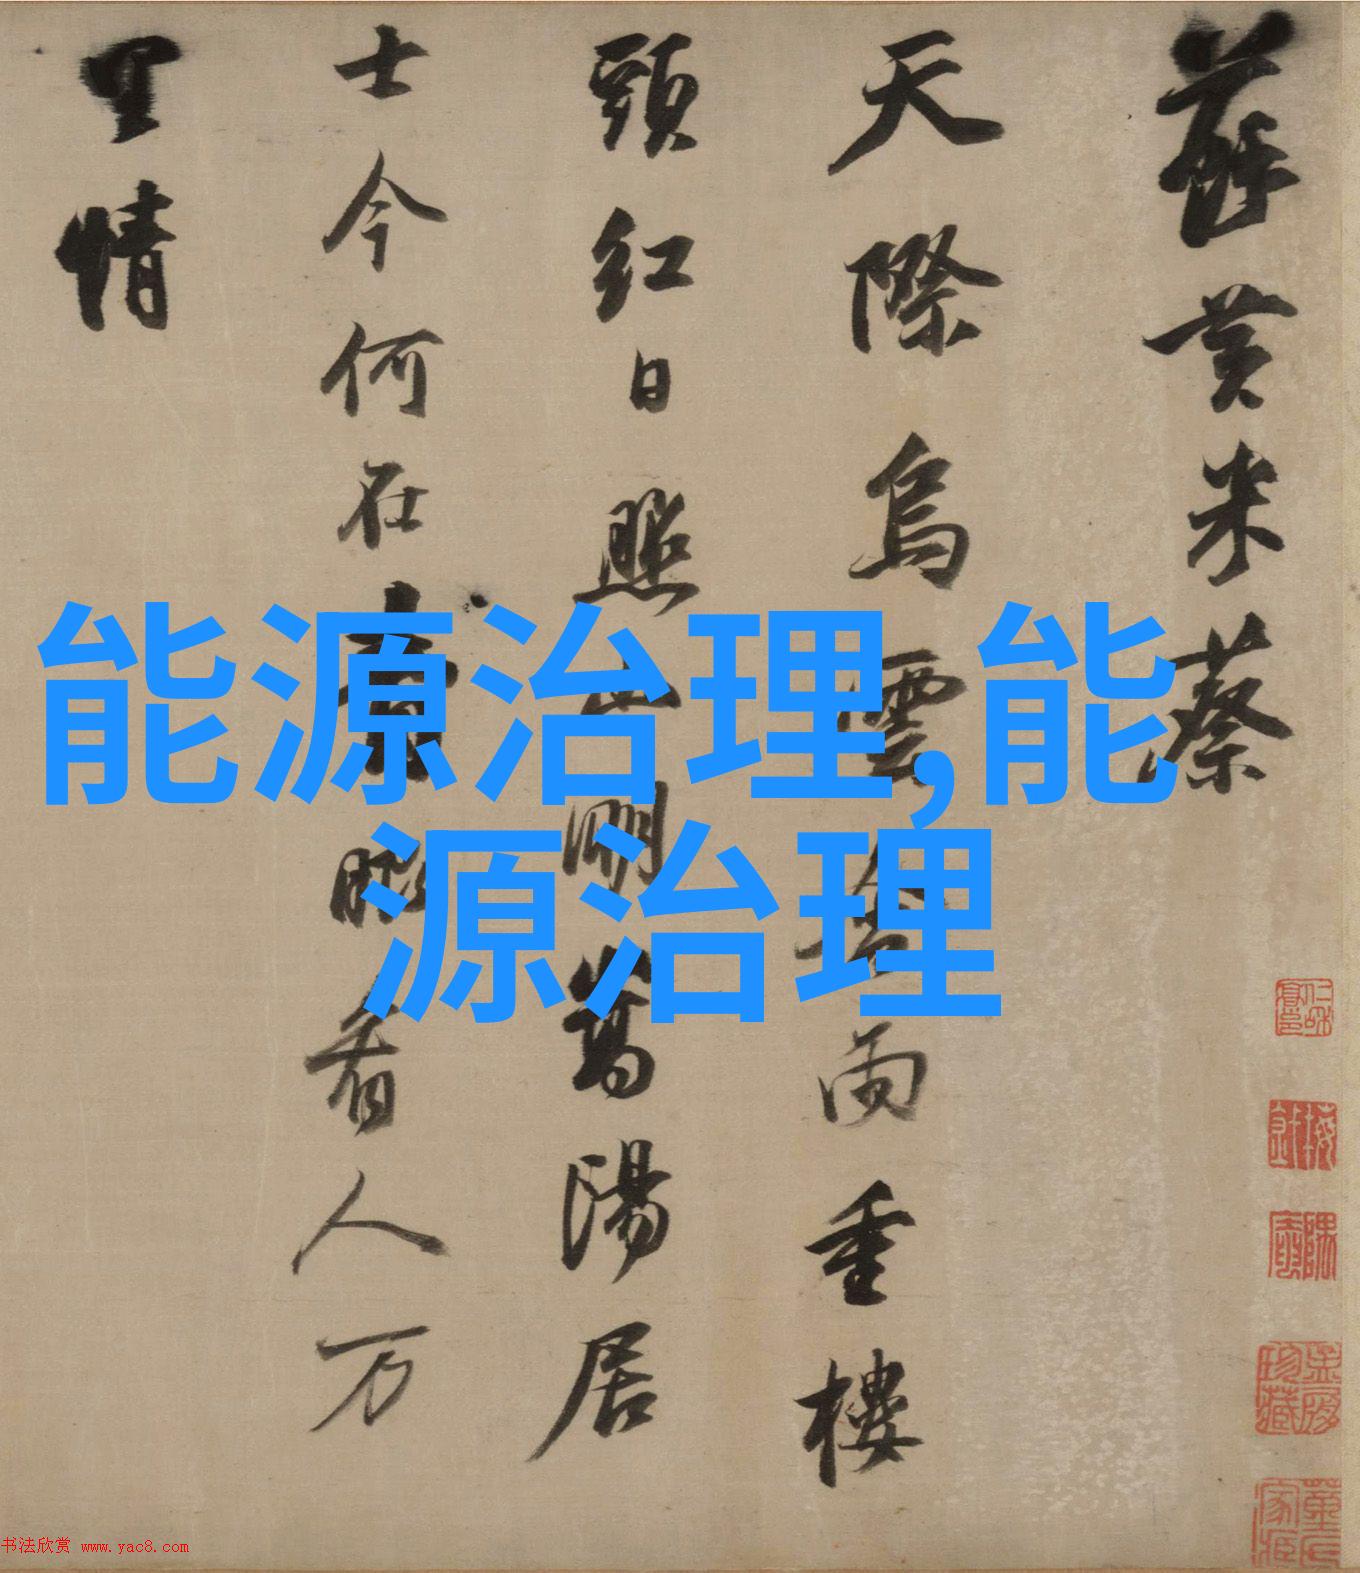 蘇黄米蔡
天際烏雲含雨重樓
頭紅日照山明嵩陽居
士今何在青眼看人万
里情
能源治理,能
源治理
书法欣赏 www.yac8.com